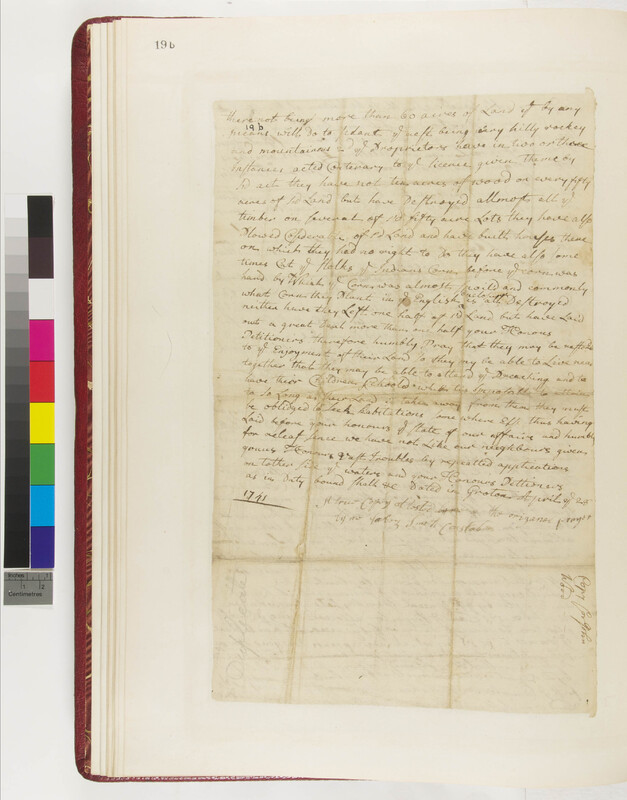 19 b
there not being more than 60 acres of Land yt by any
19 b
means will do to plant ye rest being very hilly rockey
and mountainous - ye Proprietors have in two or three
Instances acted Contrary to ye licence given them by
sd act they have not ten acres of wood on every fifty
acres of sd Land but have Destroyed allmost all ye
timber on several of sd fifty acre Lots they have also
Plowed of sd Land and have built houses there
on which they had no right to do they have also some
times Cut ye Stalks of ye Indians Corn before ye corn was
hard by Which ye Corn was almost spoild and commonly
what Corn they Plant in ye English is all Destroyed
neither have they Left one half of sd Land but have Laid
out a great Deal more then one half your Honours
Petitioners therefore humbly Pray that they may be restored
to ye Enjoyment of their Land so they may be able to Live near
together that they may be able to attend ye Preaching and to
have their Children Schooled which tis Impossible to
so Long as their Land is taken away from them they must
be oblidged to seek habitations some where Else thus having
Laid before your honours ye State of our affairs and humbly
for releaf since we have not Like our neighbours given
youer Honours Troubles by repeated applications
on tother side ye waters and your Honours Petitioners
as in duty bound shall &c Dated in Groton April ye 20
1741
A true Copy of the original
Copy for John
Ward
Duplicate
Inches 1 2
Centimetres